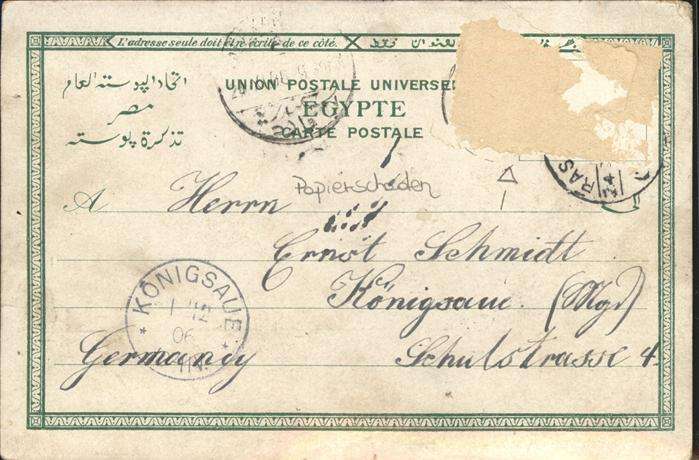 L'adresse seule doit être écrite de ce côté.
اتحاد البوسته العام
مصر
تذكرة بوسته
UNION POSTALE UNIVERSE
EGYPTE
CARTE POSTALE
RAS
Papierschaden
A Herrn
Ernst Schmidt
Königsaue. (Mgd)
Germaney Schulstrasse 4.
KÖNIGSAUE
06